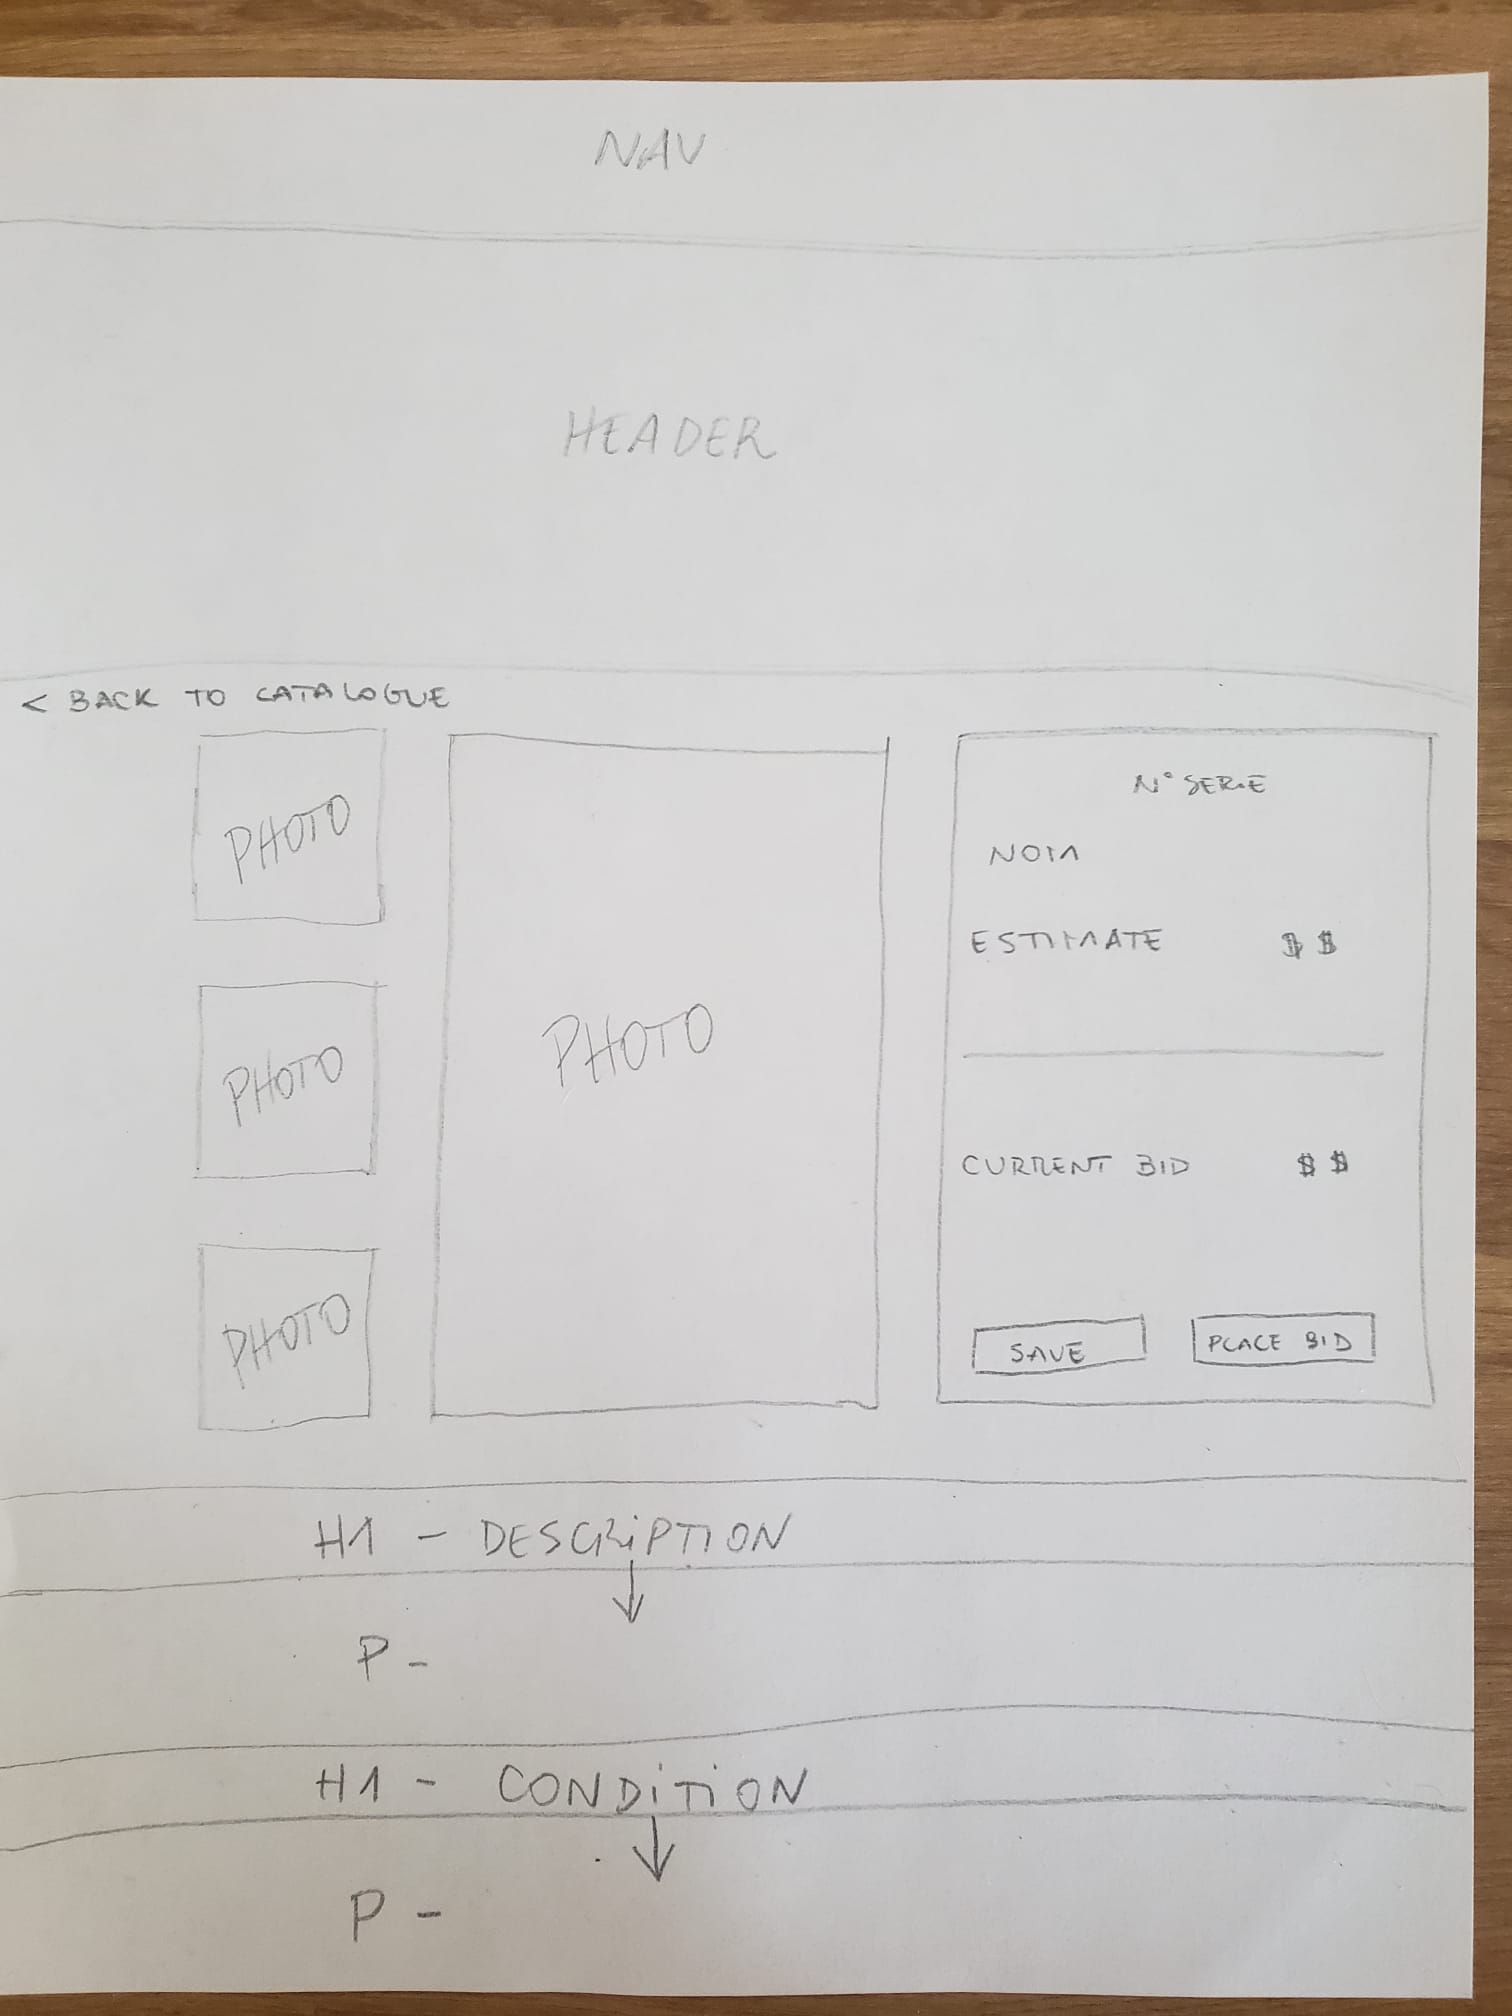 NAV
HEADER
< BACK TO CATALOGUE
PHOTO
PHOTO
PHOTO
PHOTO
N° SERIE
NOM
ESTIMATE $ $
CURRENT BID $ $
SAVE
PLACE BID
H1 - DESCRiPTION
P -
H1 - CONDiTiON
P -